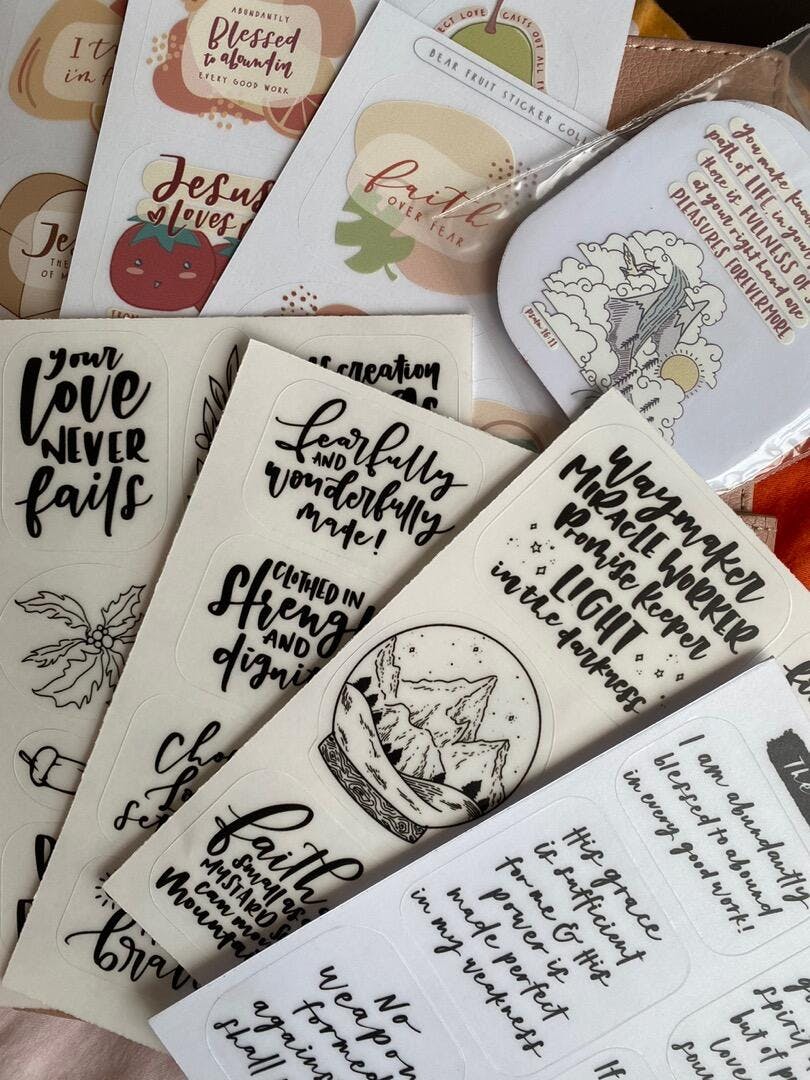 I
i'm
ABUNDANTLY
Blessed
to abound in
EVERY GOOD WORK
LOVE
CASTS OUT ALL
BEAR FRUIT STICKER
Jesus
Loves
faith
OVER FEAR
You make
path of LIFE in your
there is FULLNESS
at your right hand are
PLEASURES FOREVERMORE
psalm 16:11
your
love
NEVER
fails
creation
fearfully
AND
wonderfully
made!
CLOTHED IN
AND
Waymaker
MIRACLE WORKER
Promise keeper
LIGHT
in the darkness
faith
small as a
MUSTARD
can
I am abundantly
blessed to abound
in every good work!
The
His grace
is sufficient
for me & His
power is
made perfect
in my weakness
No
weapon
formed
shall
but of
love
If